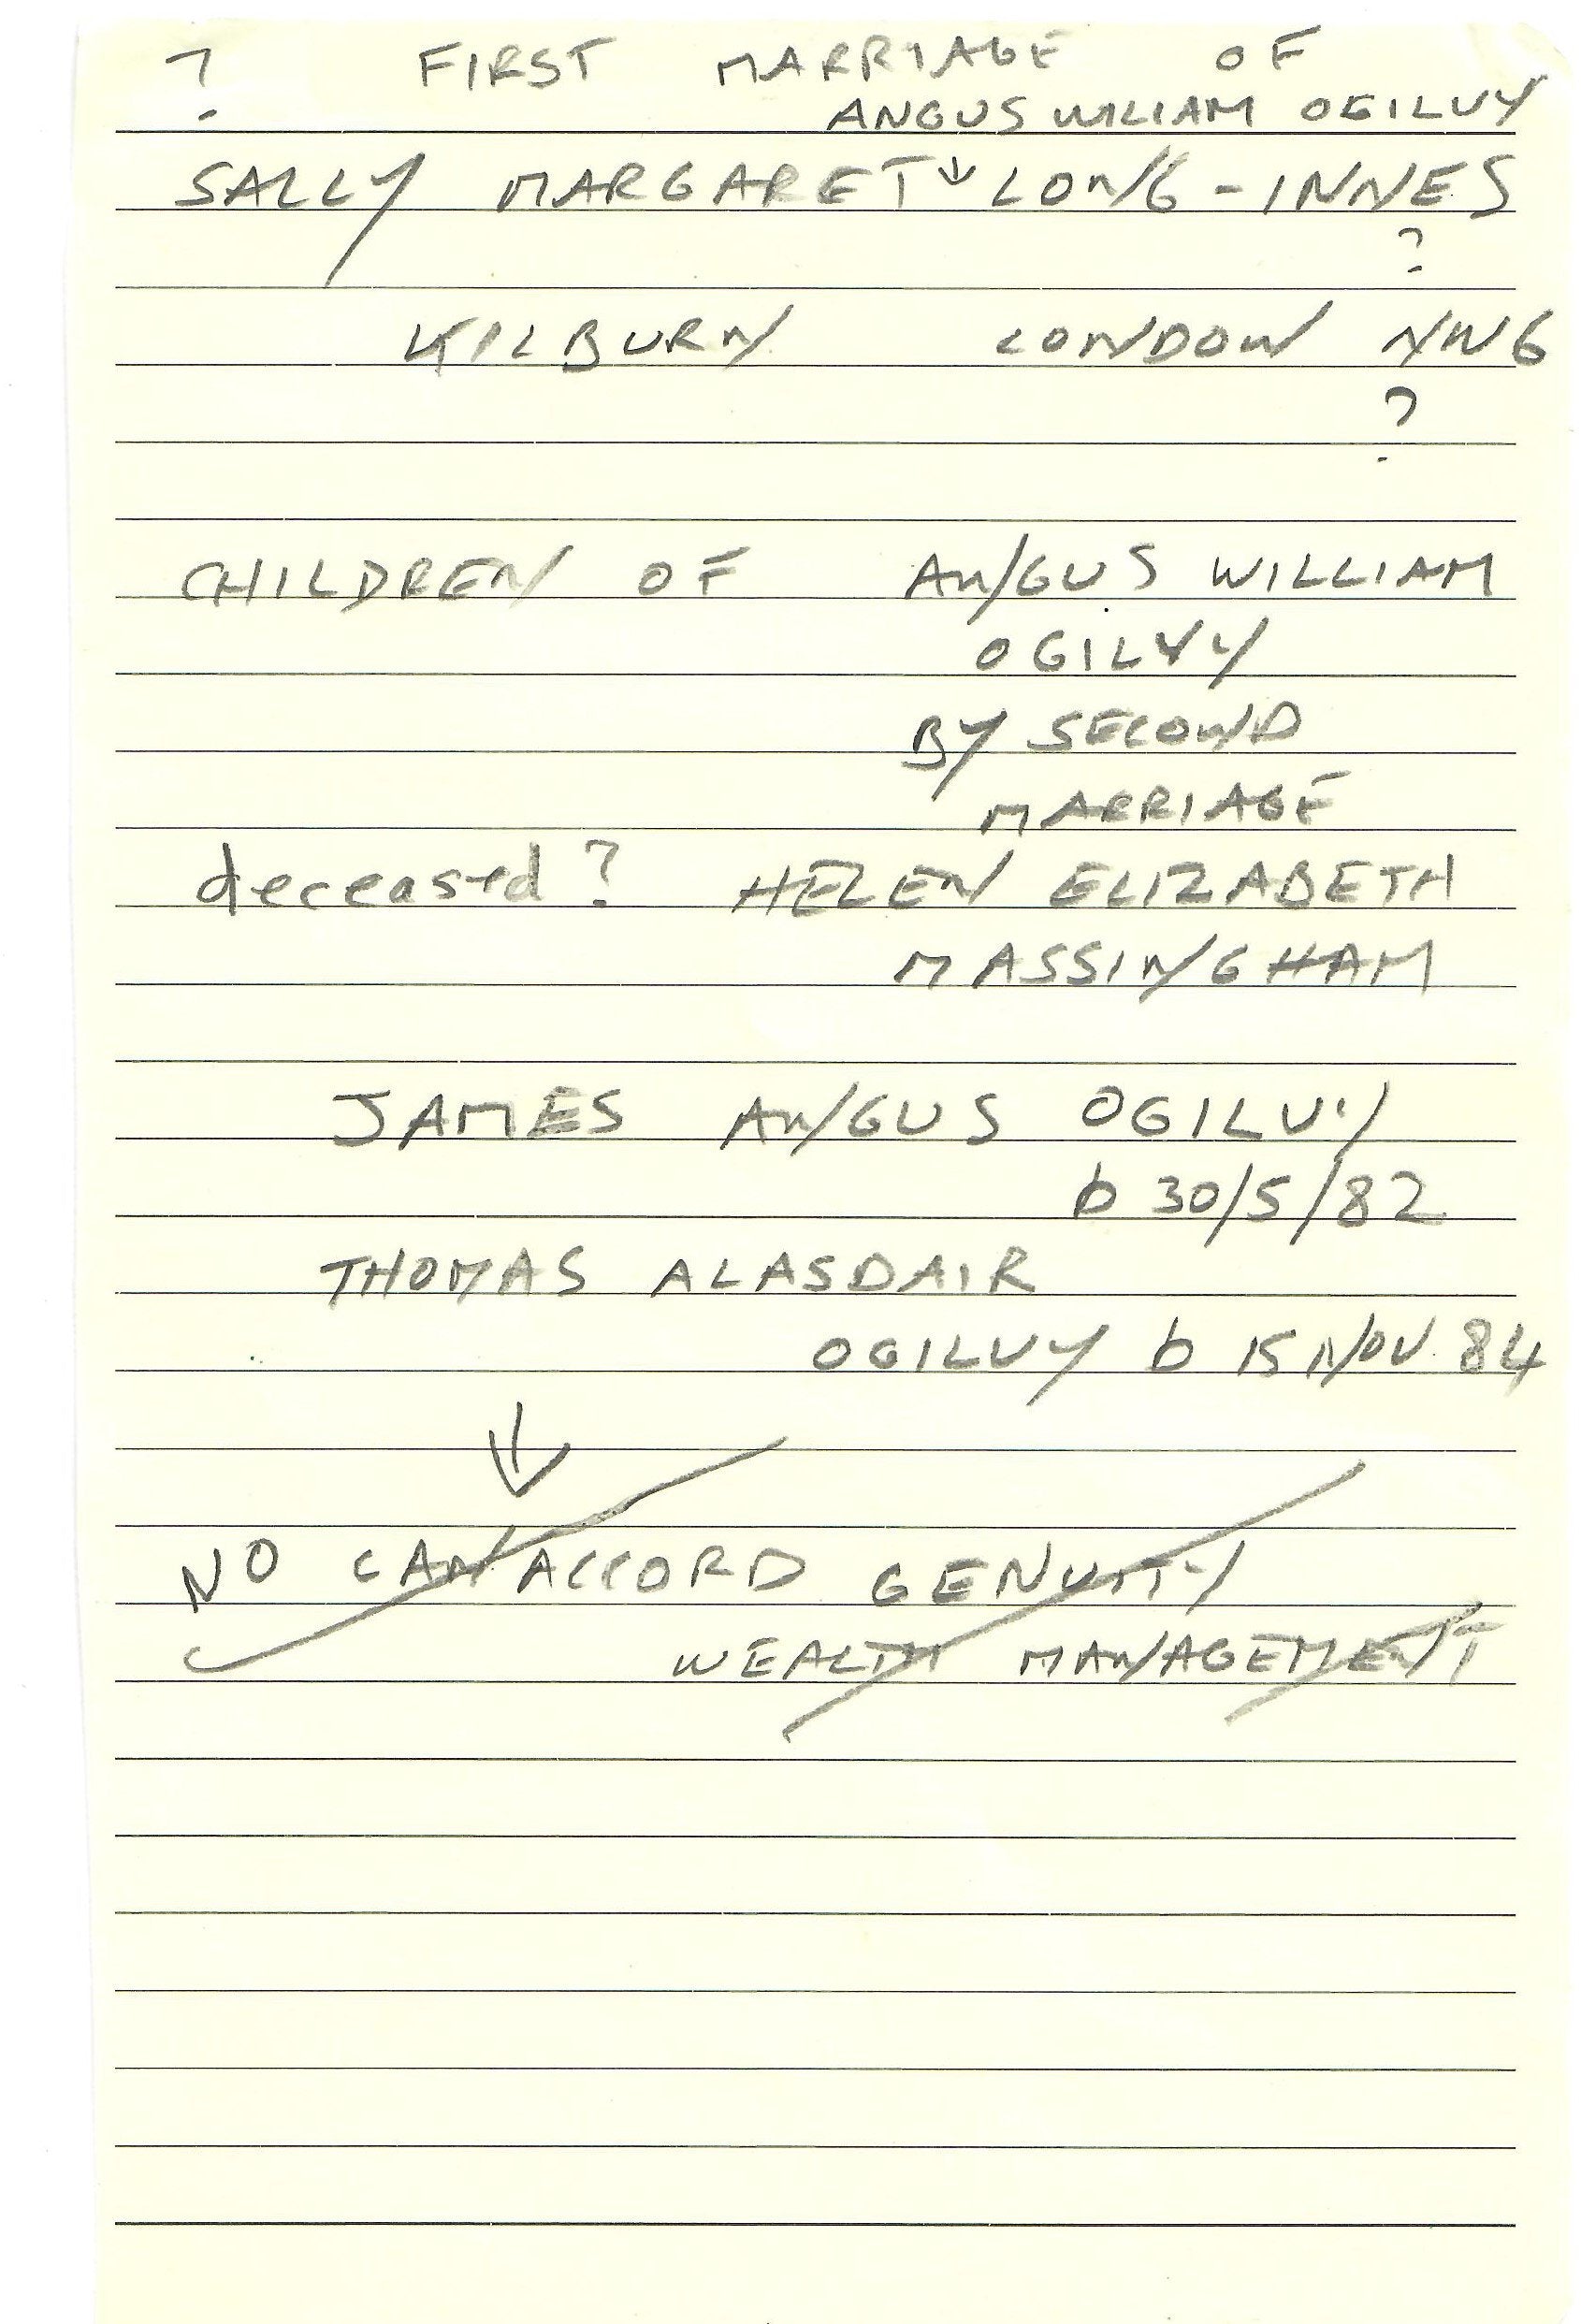 ? FIRST MARRIAGE OF
ANGUS WILIAM OGILVY
SALLY MARGARET ↓ LONG-INNES
?
KILBURN LONDON NW6
?
CHILDREN OF ANGUS WILLIAM
OGILVY
BY SECOND
MARRIAGE
deceased? HELEN ELIZABETH
MASSINGHAM
JAMES ANGUS OGILVY
b 30/5/82
THOMAS ALASDAIR
OGILVY b 15 NOV. 84
↓
NO CANACCORD GENUITY
WEALTH MANAGEMENT